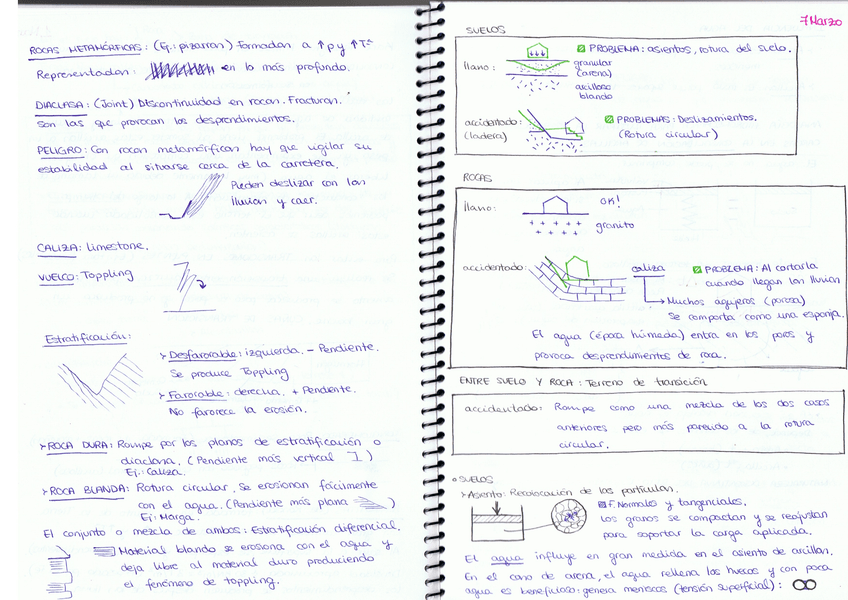 ROCAS METAMÓRFICAS: (Ej.: pizarras) Formadas a ↑p y ↑Tª
Representadas: en lo más profundo.
DIACLASA: (Joint) Discontinuidad en rocas. Fracturas.
Son las que provocan los desprendimientos.
PELIGRO: Con rocas metamórficas hay que vigilar su
estabilidad al situarse cerca de la carretera.
Pueden deslizar con las
lluvias y caer.
CALIZA: Limestone.
VUELCO: Toppling
Estratificación:
> Desfavorable: izquierda. - Pendiente.
Se produce Toppling
> Favorable: derecha. + Pendiente.
No favorece la erosión.
> ROCA DURA: Rompe por los planos de estratificación o
diaclasa. (Pendiente más vertical)
Ej.: Caliza.
> ROCA BLANDA: Rotura circular, se erosionan fácilmente
con el agua. (Pendiente más plana)
Ej: Marga.
El conjunto o mezcla de ambos: Estratificación diferencial.
Material blando se erosiona con el agua y
deja libre al material duro produciendo
el fenómeno de toppling.
7 Marzo
SUELOS
llano:
PROBLEMA: asientos, rotura del suelo.
granular
(arena)
arcilloso
blando
accidentado:
(ladera)
PROBLEMAS: Deslizamientos.
(Rotura circular)
ROCAS
llano:
OK!
granito
accidentado:
caliza
PROBLEMA: Al cortarla
cuando llegan las lluvias
Muchos agujeros (porosa)
Se comporta como una esponja.
El agua (época húmeda) entra en los poros y
provoca desprendimientos de roca.
ENTRE SUELO Y ROCA: Terreno de transición
accidentado: Rompe como una mezcla de los dos casos
anteriores pero más parecido a la rotura
circular.
• SUELOS
> Asiento: Recolocación de las partículas.
F. Normales y tangenciales.
Los granos se compactan y se reajustan
para soportar la carga aplicada.
El agua influye en gran medida en el asiento de arcillas.
En el caso de arena, el agua rellena los huecos y con poca
agua es beneficioso: genera meniscos (tensión superficial):